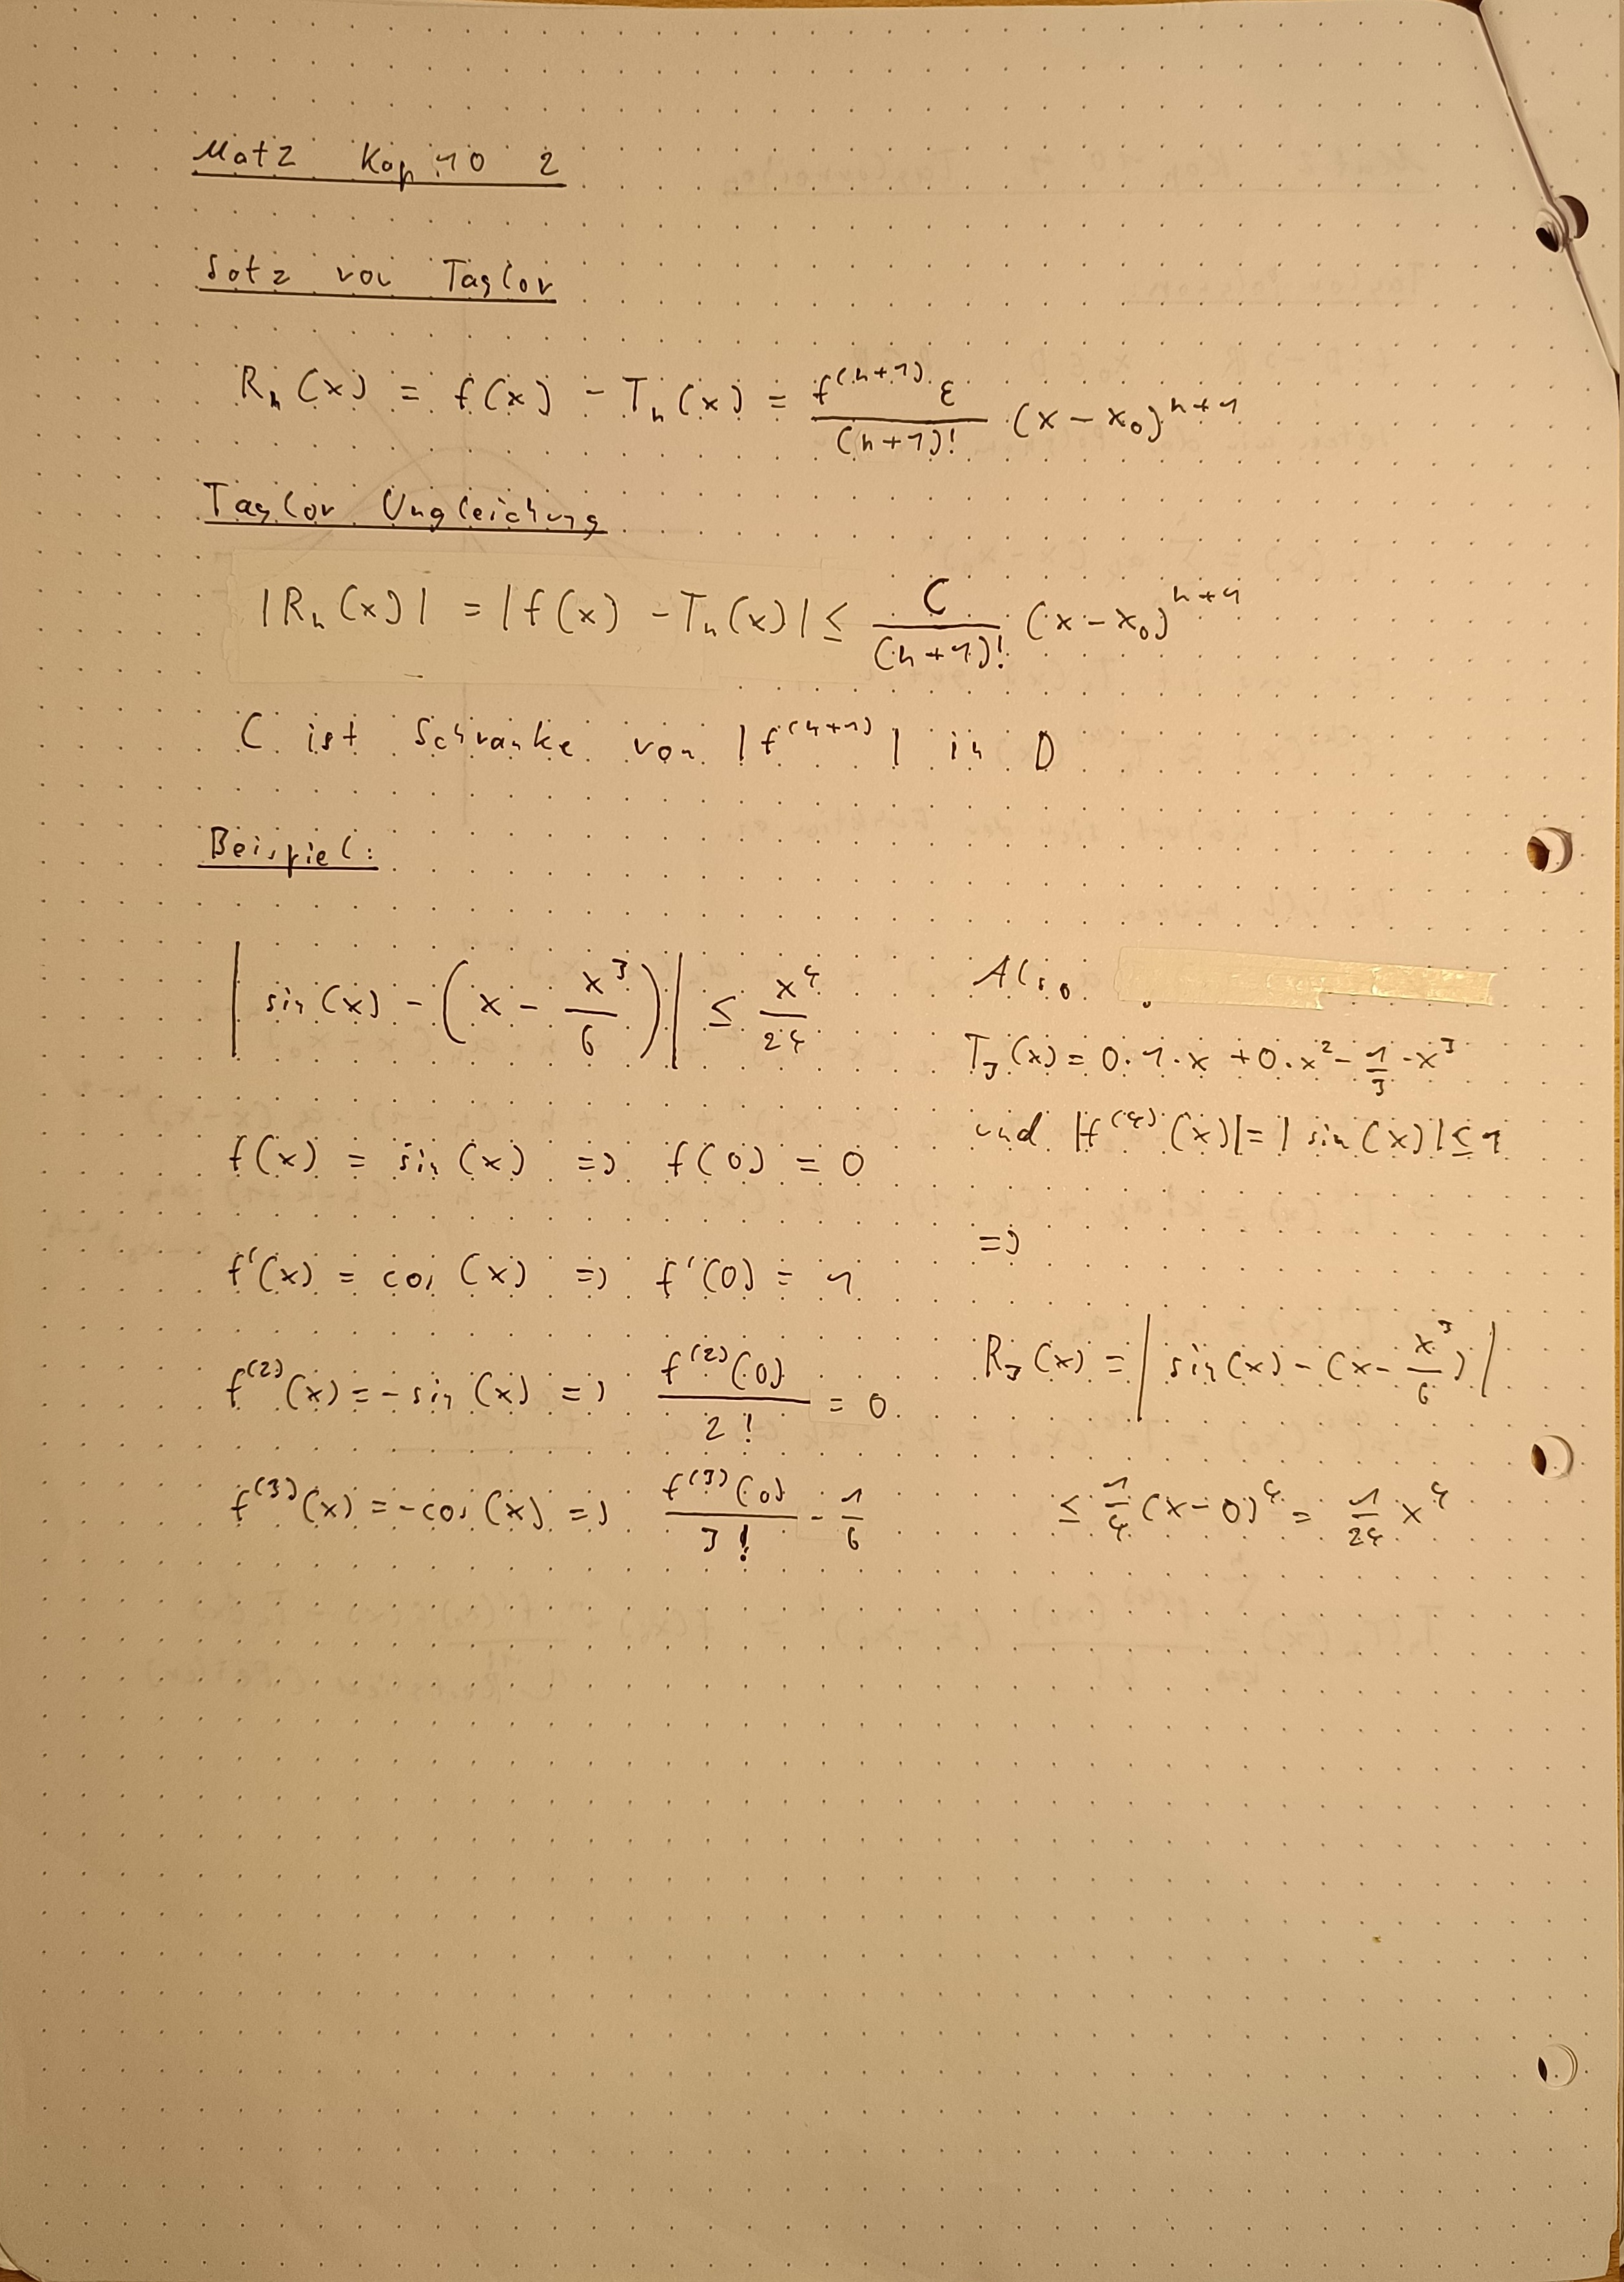 Mat 2 Kap. 10 2
Satz von Taylor
Rₙ(x) = f(x) - Tₙ(x) = f⁽ⁿ⁺¹⁾ ε / (n+1)! (x - x₀)ⁿ⁺¹
Taylor Ungleichung
|Rₙ(x)| = |f(x) - Tₙ(x)| ≤ C / (n+1)! (x - x₀)ⁿ⁺¹
C ist Schranke von |f⁽ⁿ⁺¹⁾| in D
Beispiel:
|sin(x) - (x - x³/6)| ≤ x⁴/24
f(x) = sin(x) => f(0) = 0
f'(x) = cos(x) => f'(0) = 1
f⁽²⁾(x) = -sin(x) => f⁽²⁾(0) / 2! = 0
f⁽³⁾(x) = -cos(x) => f⁽³⁾(0) / 3! - 1/6
Also
T₃(x) = 0·1·x + 0·x² - 1/3·x³
und |f⁽⁴⁾(x)| = |sin(x)| ≤ 1
=>
R₃(x) = |sin(x) - (x - x³/6)|
≤ 1/4 (x-0)⁴ = 1/24 x⁴